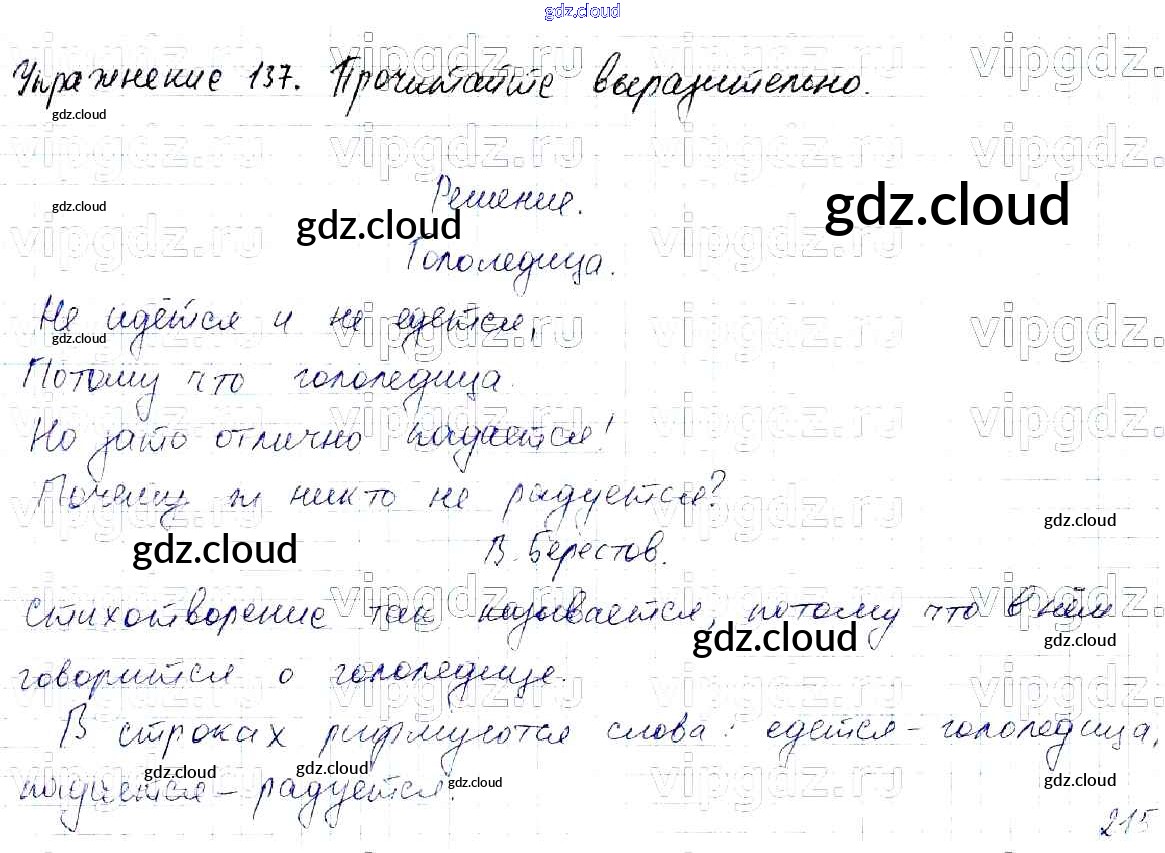 gdz.cloud
Упражнение 137. Прочитайте выразительно.
gdz.cloud
vipgdz.ru vipgdz.ru vipgdz.ru vipgdz.
Решение.
gdz.cloud gdz.cloud gdz.cloud
Гололедица.
Не идётся и не едется,
gdz.cloud
Потому что гололедица.
Но зато отлично падается!
Почему ж никто не радуется?
gdz.cloud
gdz.cloud В. Берестов.
Стихотворение так называется, потому что в нём
gdz.cloud gdz.cloud
говорится о гололедице.
В строках рифмуются слова: едется - гололедица,
gdz.cloud gdz.cloud gdz.cloud gdz.cloud
падается - радуется.
215